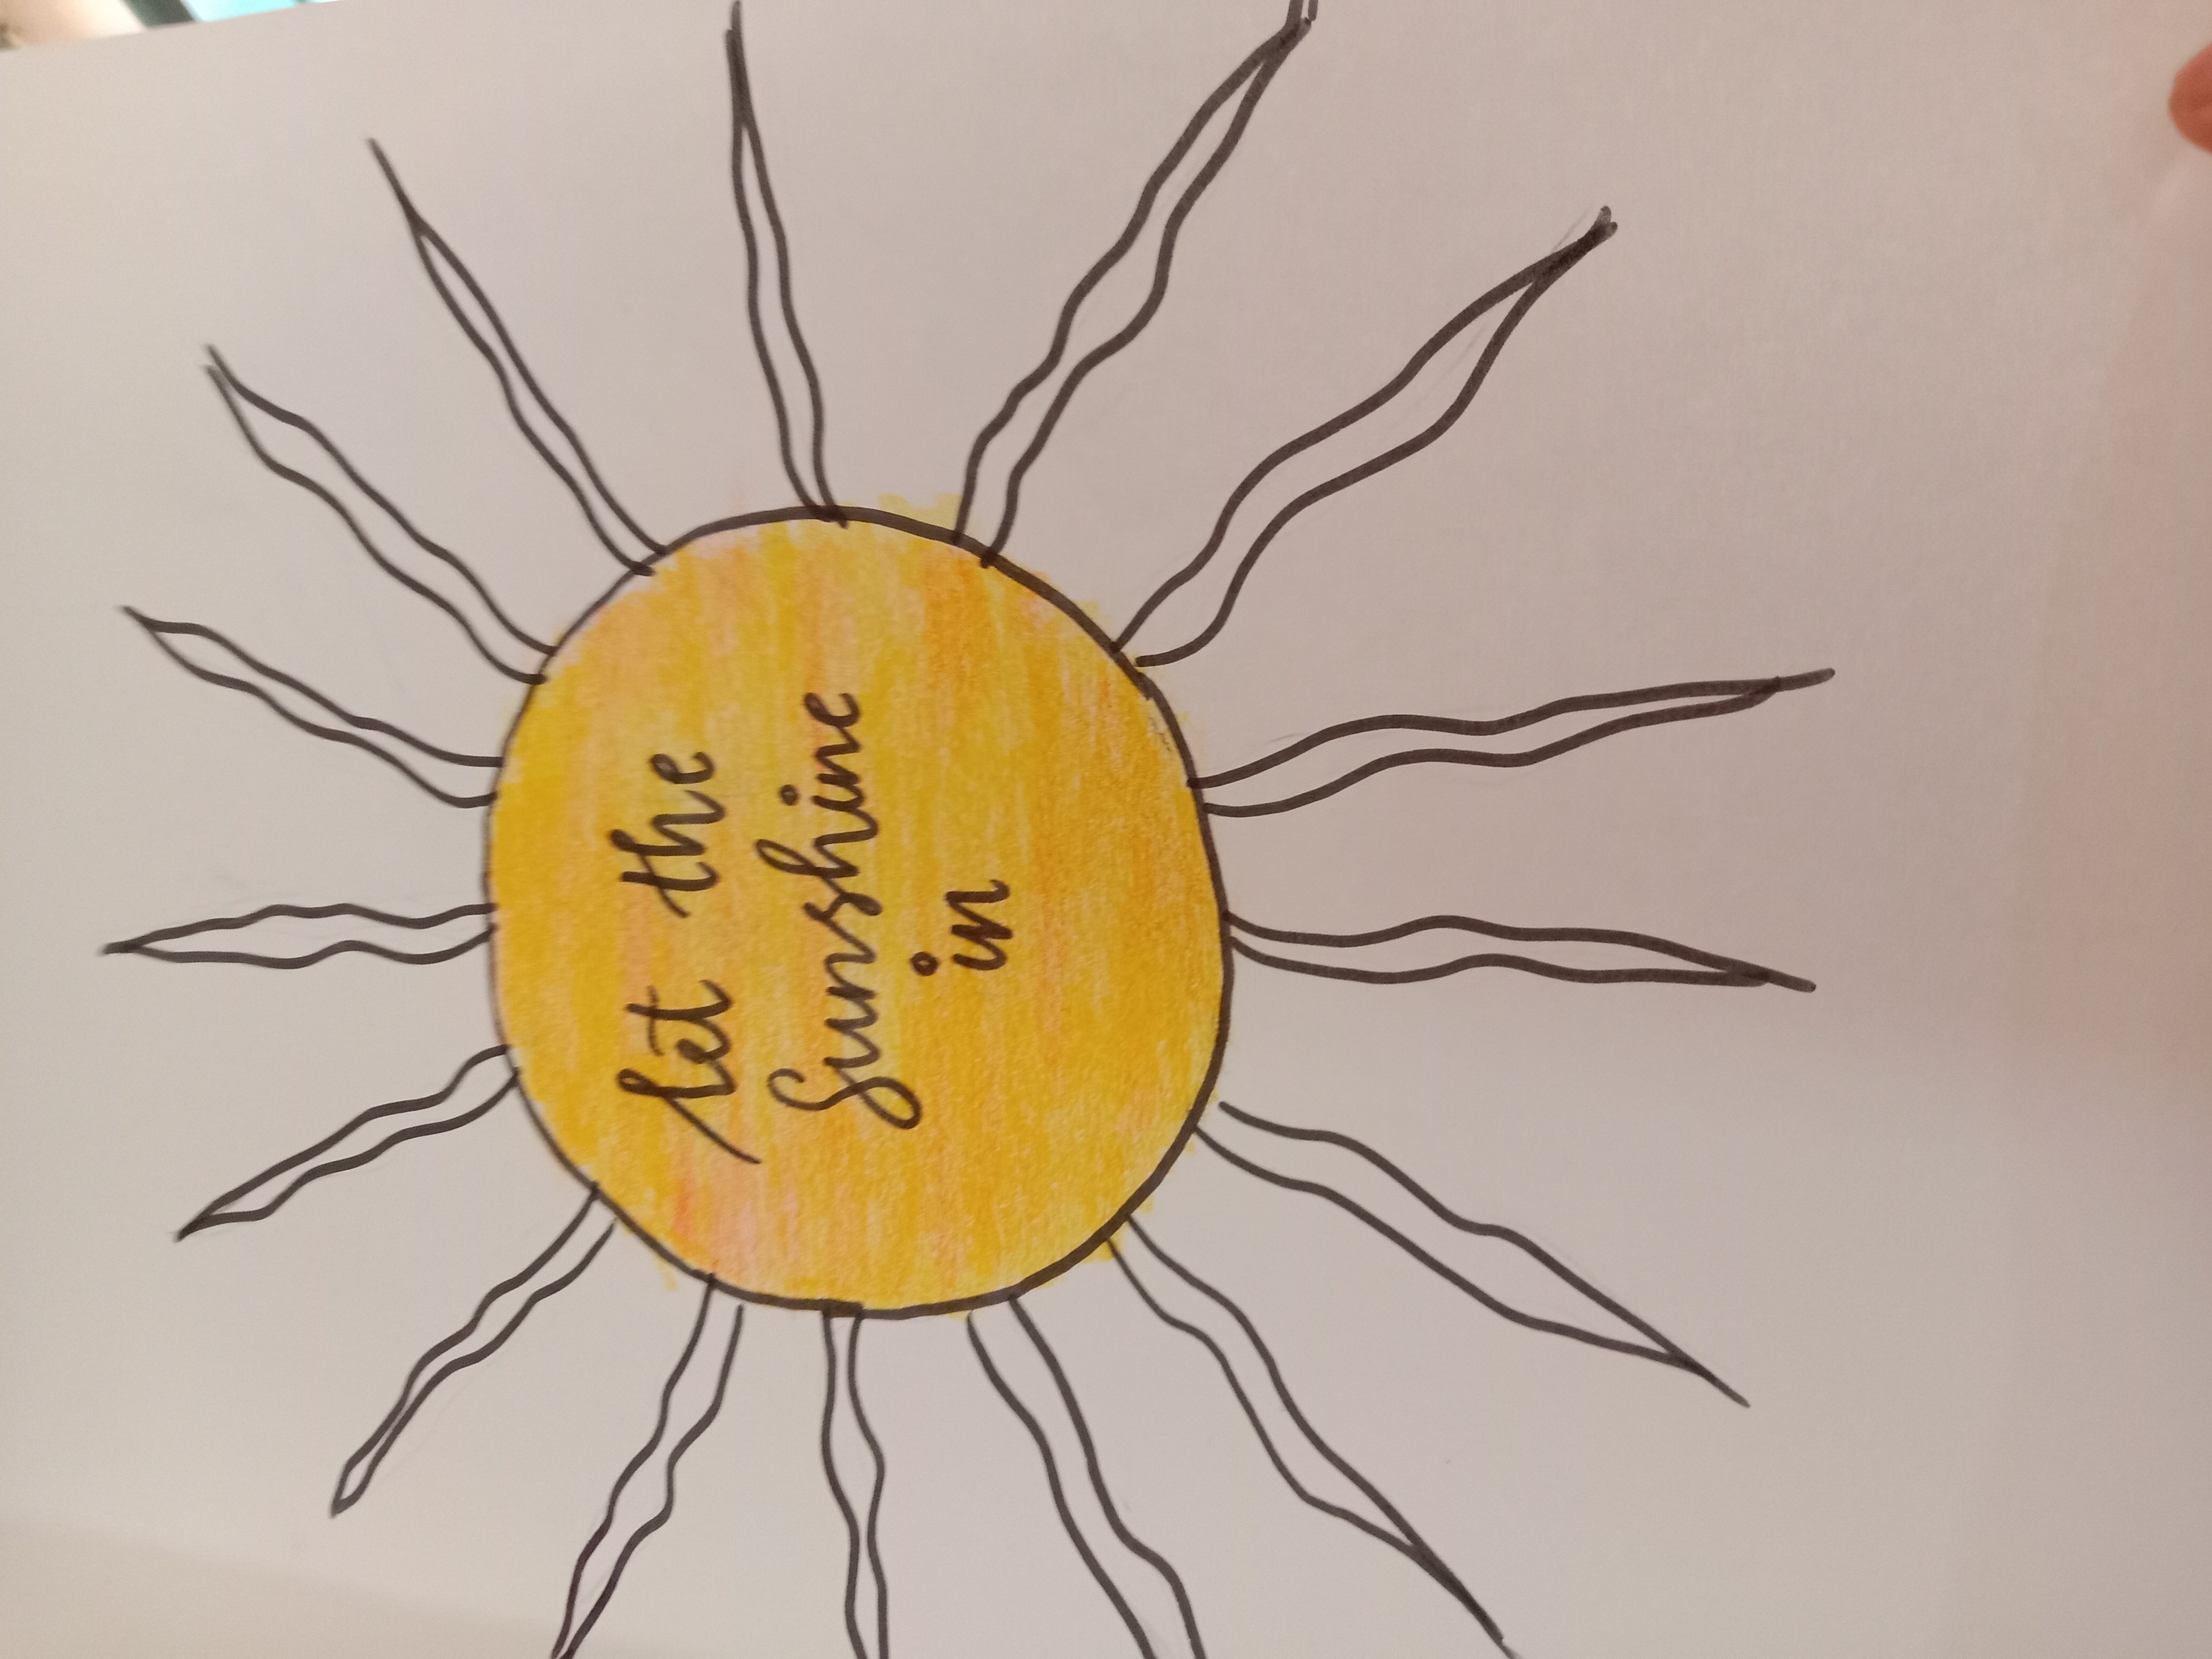 let the
Sunshine
in